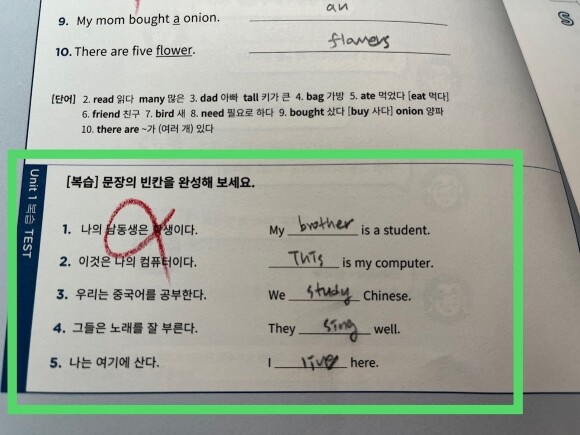 an
9. My mom bought a onion.
flowers
10. There are five flower.
[단어] 2. read 읽다 many 많은 3. dad 아빠 tall 키가 큰 4. bag 가방 5. ate 먹었다 [eat 먹다]
6. friend 친구 7. bird 새 8. need 필요로 하다 9. bought 샀다 [buy 사다] onion 양파
10. there are ~가 (여러 개) 있다
Unit 1 복습 TEST
[복습] 문장의 빈칸을 완성해 보세요.
1. 나의 남동생은 학생이다. My brother is a student.
2. 이것은 나의 컴퓨터이다. This is my computer.
3. 우리는 중국어를 공부한다. We study Chinese.
4. 그들은 노래를 잘 부른다. They sing well.
5. 나는 여기에 산다. I live here.